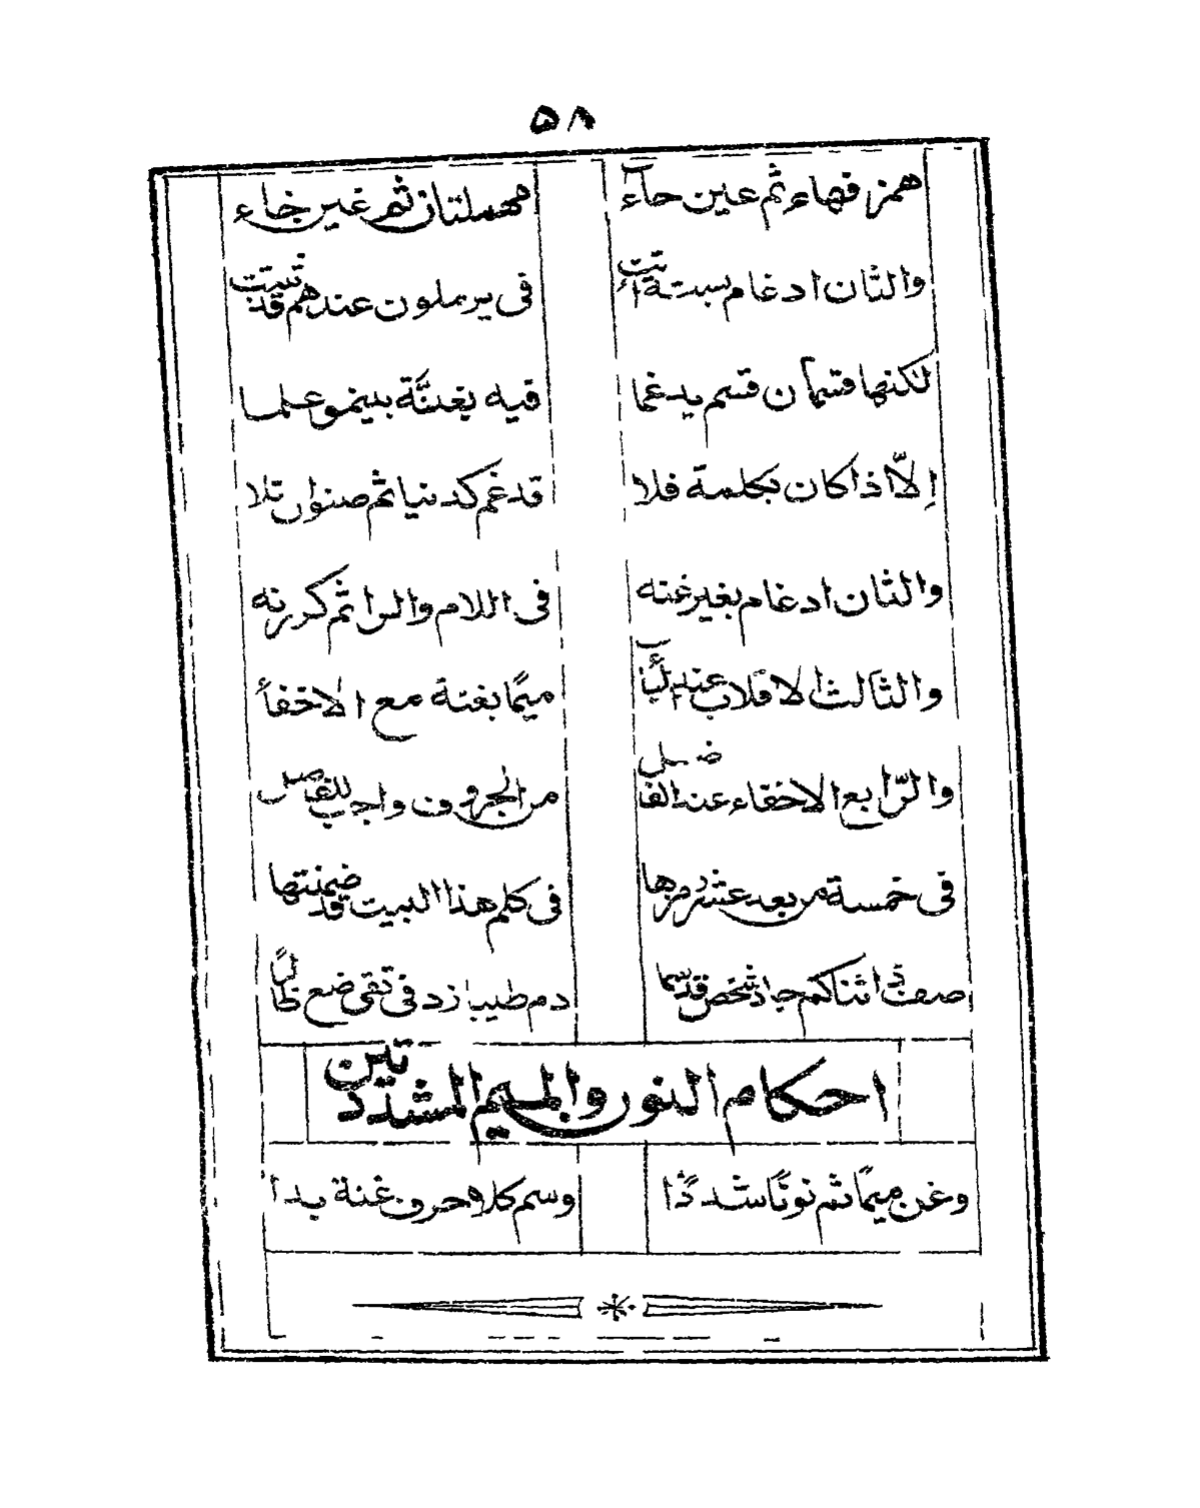 ٥٨
همز فهاء ثم عين حآء مهملتان ثم غين خاء
والثان ادغام بستة اتت فى يرملون عندهم قد ثبتت
لكنها قسمان قسم يدغما فيه بغنَّة بينمو علما
إلاّ اذا كان بكلمة فلا تدغم كدنيا ثم صنوان تلا
والثان ادغام بغير غنه فى اللام والرا ثم كررنه
والثالث الاقلاب عند البأ ميمًا بغنة مع الاخفأ
والرّابع الاخفاء عند الفاضل من الحروف واجب للفاصل
فى خمسة من بعد عشر رمزها فى كلم هذا البيت قد ضمنتها
صف ذا ثنا كم جاد شخص قد سما دم طيبا زد فى تقى ضع ظالمًا
احكام النون والميم المشددتين
وغن ميمًا ثم نونًا شددًا وسم كلا حرف غنة بدا